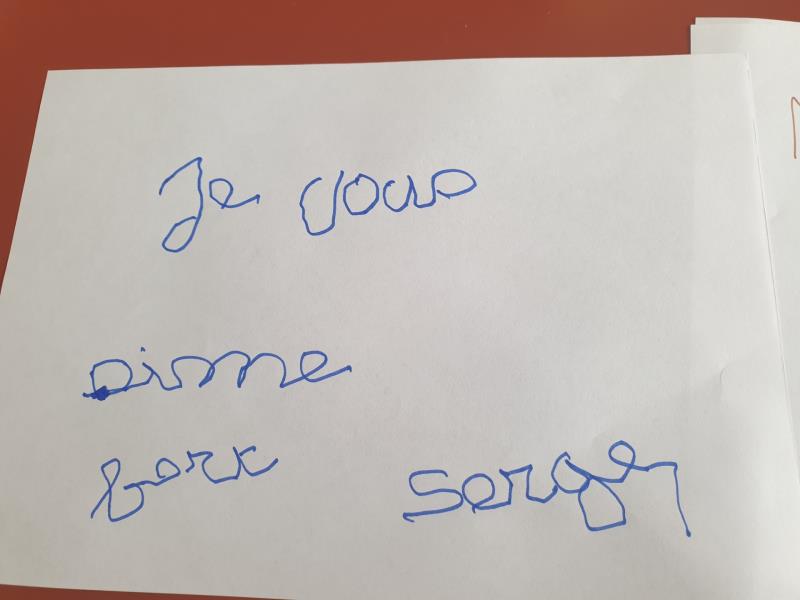 Je vous
aime
fort serge